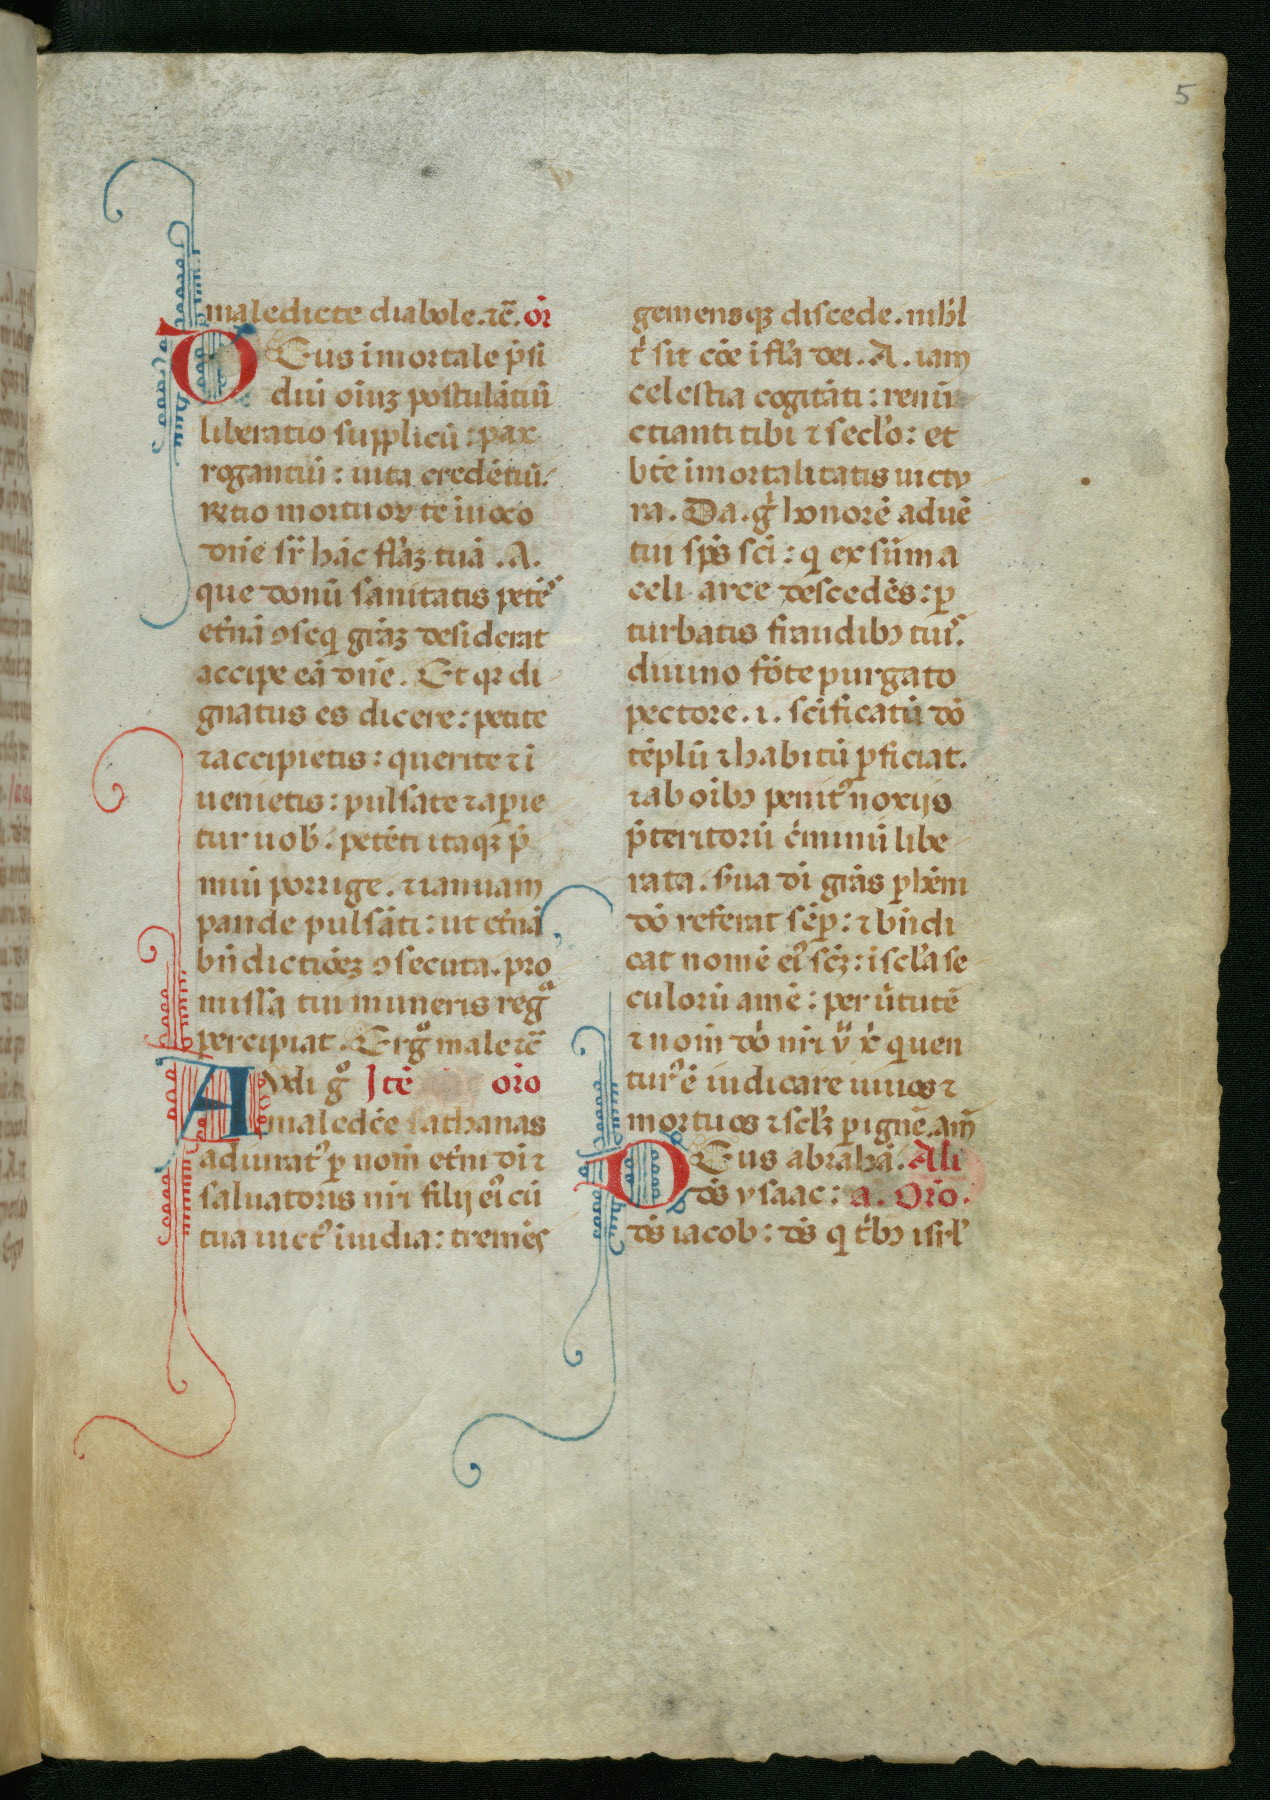 5
maledicte diabole.⁊c̄. or̄
DEus imortale p̄si
diū oīuꝫ postulātiū
liberatio supplicū : pax
rogantiū : uita credētiū.
resr̄ectio mortuoꝝ te īuoco
dn̄e sr̄ hāc fl̄aꝫ tuā .A.
que donū sanitatis petēs
et̄nā ꝯseq̄ gr̄aꝫ desiderat
accipe eā dn̄e. Et qꝛ di
gnatus es dicere : petite
⁊ accipietis : querite ⁊ ī
uenietis : pulsate ⁊ aꝑie
tur uob̄. petēti itaqꝫ p̄
miū porrige. ⁊ ianuam
pande pulsāti : ut et̄nā
bn̄dictiōeꝫ ꝯsecuta. pro
missa tui muneris regͣ
percipiat. Ergͦ male ⁊c̄
AVdi gͦ Itē or̄o
maledc̄e sathanas
adiurat᷒ ꝑ nom̄ et̄ni di ⁊
saluatoris nr̄i filij ei᷒ cū
tua uict᷒ īuidia : tremēs
gemensqꝫ discede. nih̄l
t̄ sit cōe ī fl̄a dei. A. iam
celestia cogitāti : renū
ctianti tibi ⁊ secl̄o : et
bt̄e imortalitatis uictu
ra. Da. gͦ honorē aduē
tui sp̄s sc̄i : q̄ ex sūma
celi arce descēdēs : ꝑ
turbatis fraudibꝫ tuis.
diuino fōte purgato
pectore. ı. sc̄ificatū dō
tēplū ⁊ habitū ꝑficiat.
⁊ ab oībꝫ penit᷒ noxijs
p̄teritoꝝ c̄minū libe
rata. s̄ua di gr̄as ꝑhēm
dō referat sēꝑ : ⁊ bn̄di
cat nomē ei᷒ sc̄ꝫ : ī scl̄a se
culorū amē : per ūtutē
⁊ nom̄ dō nr̄i ȳ x̄ quen
tur᷒ ē iudicare uiuos ⁊
mortuos ⁊ scl̄ꝫ ꝑ ignē. am̄
DEus abrahā. Ali
ds̄ ysaac : a. Or̄o.
ds̄ iacob : ds̄ q̄ t̄bꝫ isrl̄